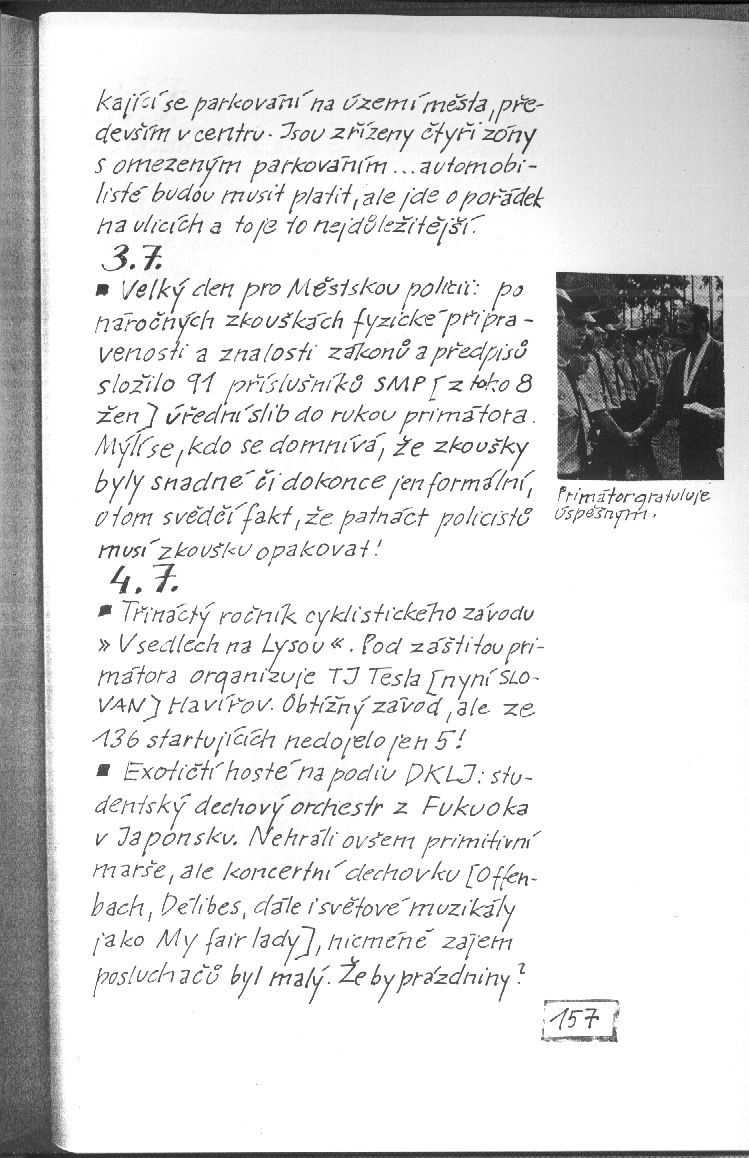 kající se parkování na území města, pře-
devším v centru. Jsou zřízeny čtyři zóny
s omezeným parkováním... automobi-
listé budou musit platit, ale jde o pořádek
na ulicích a to je to nejdůležitější.
3.7.
▪ Velký den pro Městskou policii: po
náročných zkouškách fyzické připra-
venosti a znalosti zákonů a předpisů
složilo 91 příslušníků SMP [z toho 8
žen] úřední slib do rukou primátora.
Mýlí se, kdo se domnívá, že zkoušky
byly snadné či dokonce jen formální,
o tom svědčí fakt, že patnáct policistů
musí zkoušku opakovat!
Primátor gratuluje
úspěšným.
4.7.
▪ Třináctý ročník cyklistického závodu
» V sedlech na Lysou «. Pod záštitou pri-
mátora organizuje TJ Tesla [nyní SLO-
VAN] Havířov. Obtížný závod, ale ze
136 startujících nedojelo jen 5!
▪ Exotičtí hosté na podiu DKLJ: stu-
dentský dechový orchestr z Fukuoka
v Japonsku. Nehráli ovšem primitivní
marše, ale koncertní dechovku [Offen-
bach, Délibes, dále i světové muzikály
jako My fair lady], nicméně zájem
posluchačů byl malý. Že by prázdniny?
157